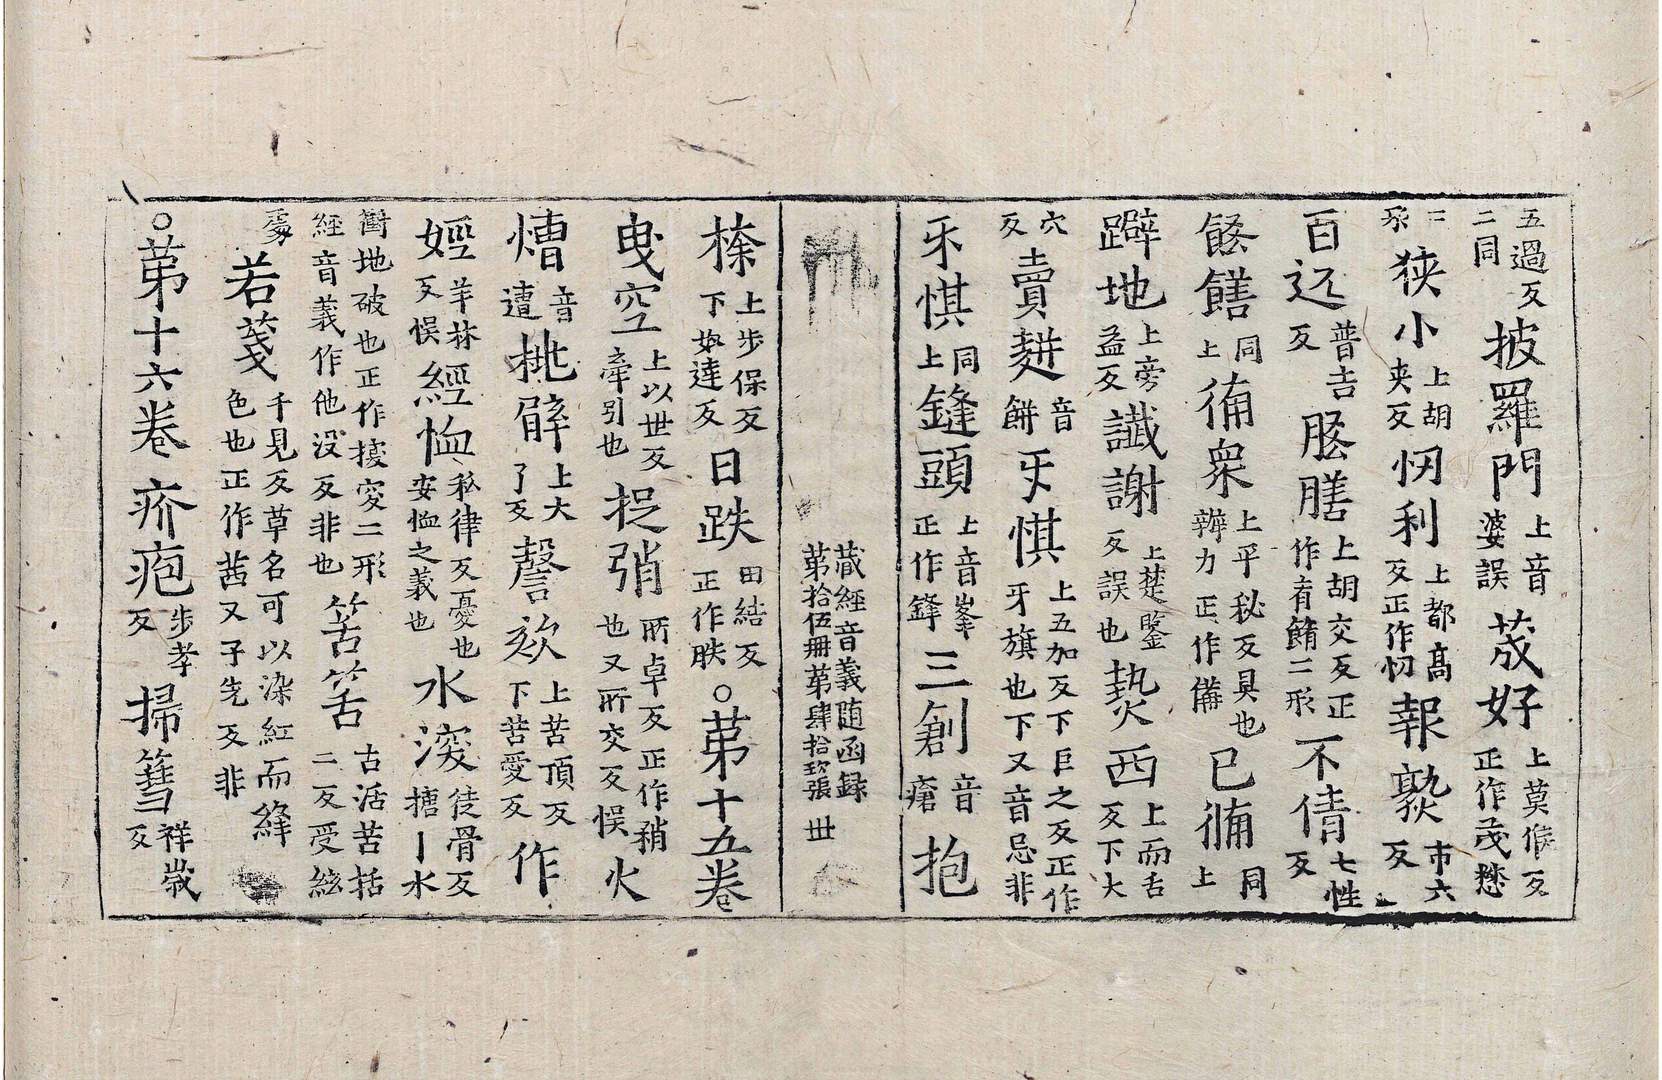 五過反二同披羅門上音婆誤荗好上莫侯反正作茂懋
二狭小上胡夾反忉利上都高反正作忉報㷩市六反
百远普吉反䐺膳上胡交反正作有䱛二形不倩七性反
餚饍同上俻衆上平秘反具也辦力正作備已俻同上
躃地上旁益反讖謝上楚鑒反誤也爇西上而舌反下大
穴反賣麸音餅牙惈上五加反下巨之反正作牙旗也下又音忌非
牙惈同上鏠頭上音峯正作鋒三創音瘡抱
藏經音義随函録第拾伍冊第肆拾玖張丗
榛上步保反下㚢達反日跌田結反正作昳○第十五卷
曳空上以世反牽引也捉弰所卓反正作矟也又所交反悮火
㷮音遭桃擗上大了反謦欬上苦頂反下苦愛反作
婬羊林反悮經恤私律反憂也安恤之義也水湥徒骨反搪丨水
衝地破也正作揬突二形經音義作他没反非也筈筈古活苦括二反受絃
處若茷千見反草名可以染紅而絳色也正作茜又子先反非
○第十六卷疥疱步孝反掃篲祥歲反